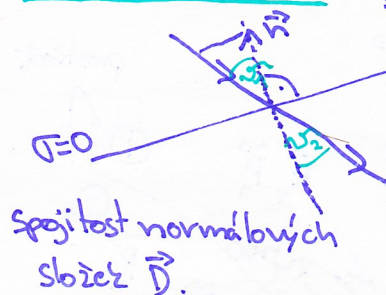 n⃗
ϑ₂
σ=0
spojitost normálových
složek D⃗.